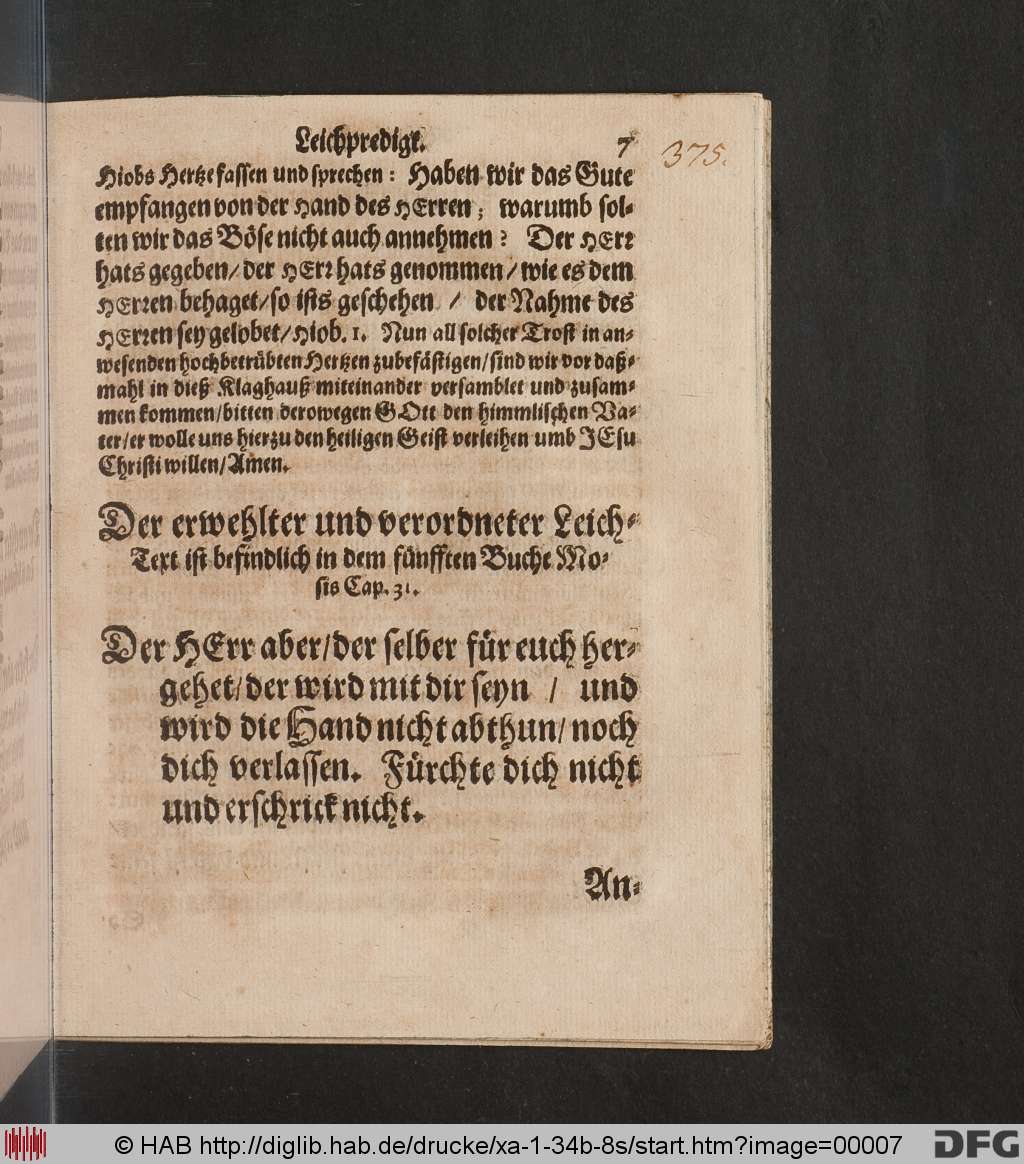 Leichpredigt. 7 375.
Hiobs Hertze fassen und sprechen: Haben wir das Gute
empfangen von der Hand des HErren; warumb sol-
ten wir das Böse nicht auch annehmen? Der HErr
hats gegeben/ der HErr hats genommen/ wie es dem
HErren behaget/ so ists geschehen / der Nahme des
HErren sey gelobet/ Hiob. 1. Nun all solcher Trost in an-
wesenden hochbetrübten Hertzen zubefästigen/ sind wir vor daß-
mahl in dieß Klaghauß miteinander versamblet und zusam-
men kommen/ bitten derowegen GOtt den himmlischen Va-
ter/ er wolle uns hierzu den heiligen Geist verleihen umb JEsu
Christi willen/ Amen.
Der erwehlter und verordneter Leich-
Text ist befindlich in dem fünfften Buche Mo-
sis Cap. 31.
Der HErr aber/ der selber für euch her-
gehet/ der wird mit dir seyn / und
wird die Hand nicht abthun/ noch
dich verlassen. Fürchte dich nicht
und erschrick nicht.
An-
© HAB http://diglib.hab.de/drucke/xa-1-34b-8s/start.htm?image=00007 DFG